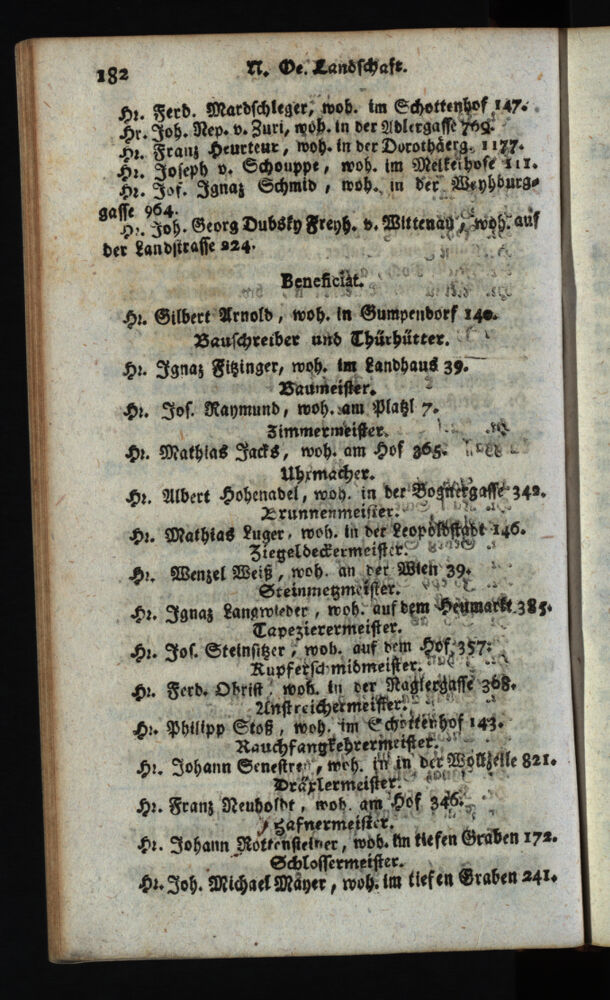 182
N. Oe. Landschaft.
Hr. Ferd. Mardschleger, woh. im Schottenhof 147.
Hr. Joh. Nep. v. Zuri, woh. in der Adlergasse 769.
Hr. Franz Heurteur, woh. in der Dorothäerg. 1177.
Hr. Joseph v. Schouppe, woh. im Melkerhofe 111.
Hr. Jos. Ignaz Schmid, woh. in der Weyhburg-
gasse 964.
Hr. Joh. Georg Dubsky Freyh. v. Wittenau, woh. auf
der Landstrasse 224.
Beneficiat.
Hr. Gilbert Arnold, woh. in Gumpendorf 140.
Bauschreiber und Thürhütter.
Hr. Ignaz Fitzinger, woh. im Landhaus 39.
Baumeister.
Hr. Jos. Raymund, woh. am Platzl 7.
Zimmermeister.
Hr. Mathias Jacks, woh. am Hof 365.
Uhrmacher.
Hr. Albert Hohenadel, woh. in der Bognergasse 342.
Brunnenmeister.
Hr. Mathias Luger, woh. in der Leopoldstadt 146.
Ziegeldeckermeister.
Hr. Wenzel Weiß, woh. an der Wien 39.
Steinmetzmeister.
Hr. Ignaz Langwieder, woh. auf dem Heumarkt 385.
Tapezierermeister.
Hr. Jos. Steinsitzer, woh. auf dem Hof 357.
Kupferschmidmeister.
Hr. Ferd. Obrist, woh. in der Naglergasse 368.
Anstreichermeister.
Hr. Philipp Stoß, woh. im Schottenhof 143.
Rauchfangkehrermeister.
Hr. Johann Senestrey, woh. in in der Wollzeile 821.
Dräxlermeister.
Hr. Franz Neuholdt, woh. am Hof 346.
Hafnermeister.
Hr. Johann Rottensteiner, woh. im tiefen Graben 172.
Schlossermeister.
Hr. Joh. Michael Mayer, woh. im tiefen Graben 241.